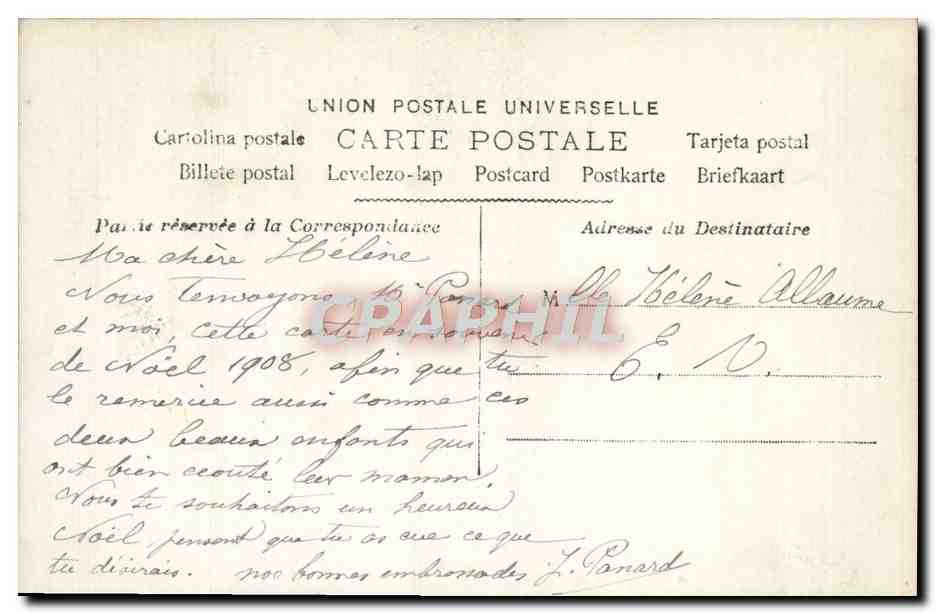 UNION POSTALE UNIVERSELLE
Cartolina postale CARTE POSTALE Tarjeta postal
Billete postal Levelezo-lap Postcard Postkarte Briefkaart
Partie réservée à la Correspondance
Adresse du Destinataire
Ma chère Hélène
Nous t'envoyons, Mr Panard
et moi, cette carte en souvenir
de Noël 1908, afin que tu
le remercie aussi comme ces
deux beaux enfants qui
ont bien écouté leur maman.
Nous te souhaitons un heureux
Noël, pensant que tu as eue ce que
tu désirais. nos bonnes embrassades J. Panard
Mlle Hélène Allaume
E. V.
CPAPHIL